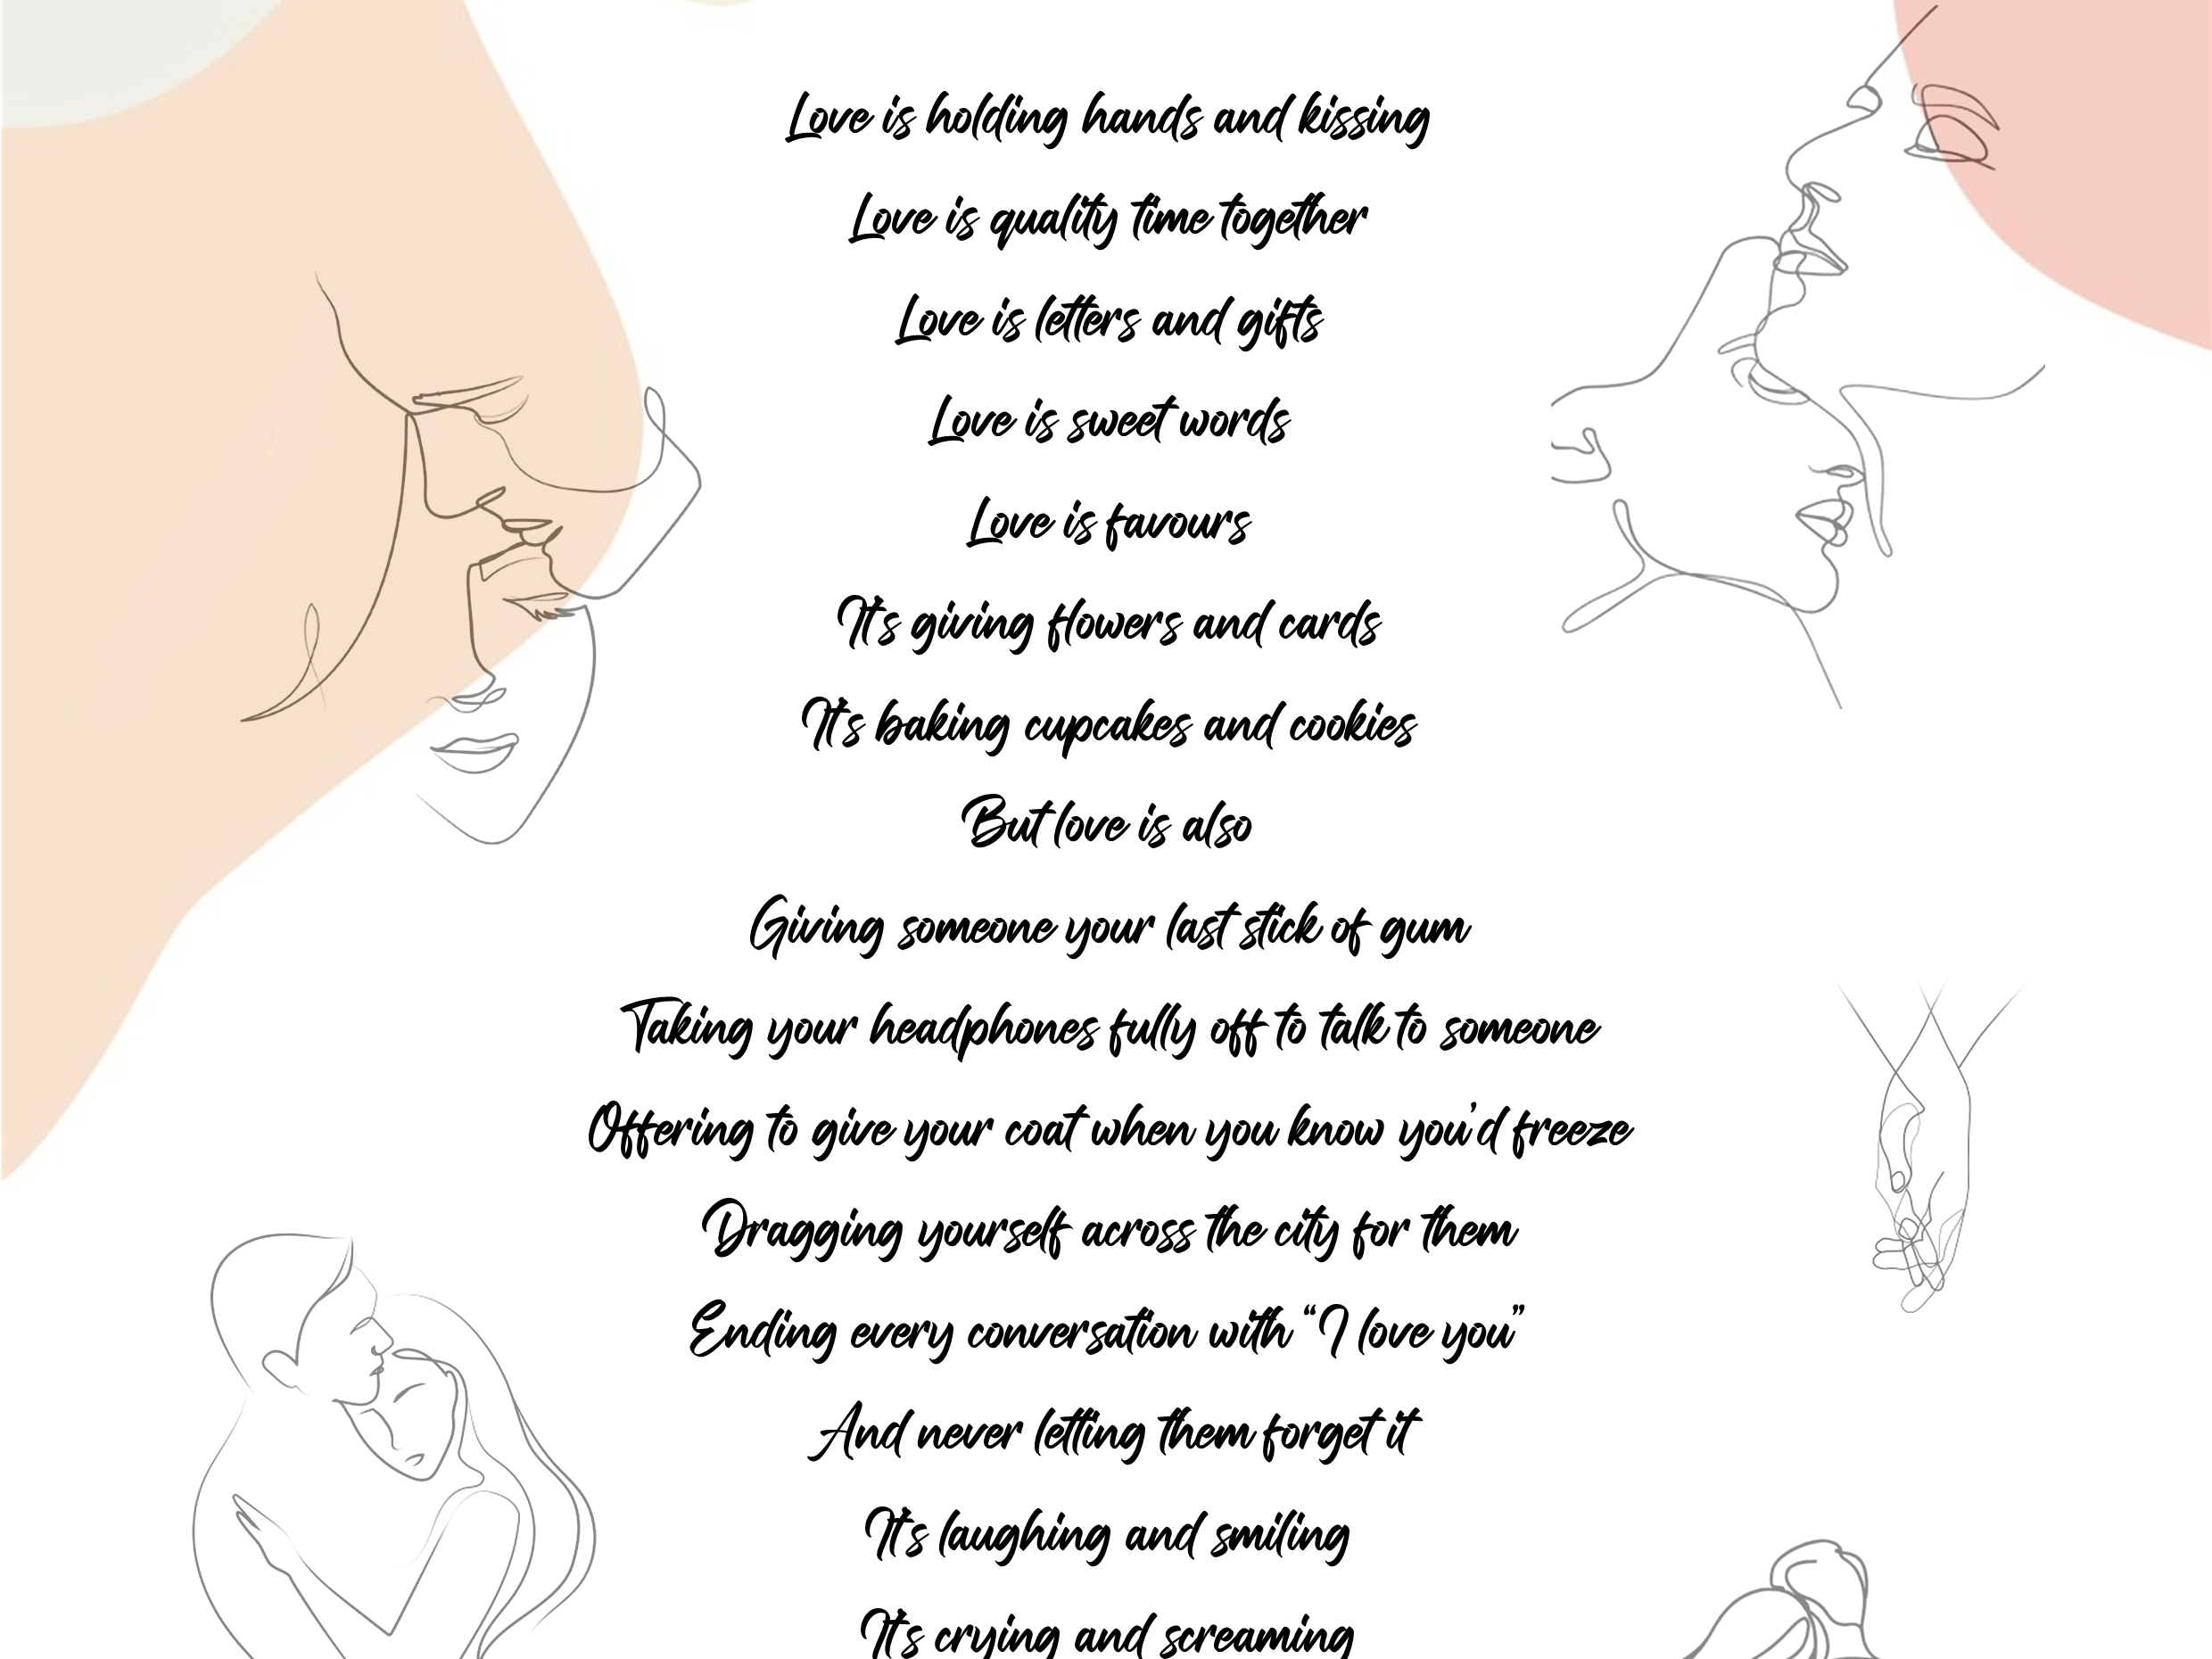 Love is holding hands and kissing
Love is quality time together
Love is letters and gifts
Love is sweet words
Love is favours
It's giving flowers and cards
It's baking cupcakes and cookies
But love is also
Giving someone your last stick of gum
Taking your headphones fully off to talk to someone
Offering to give your coat when you know you'd freeze
Dragging yourself across the city for them
Ending every conversation with “I love you”
And never letting them forget it
It's laughing and smiling
It's crying and screaming